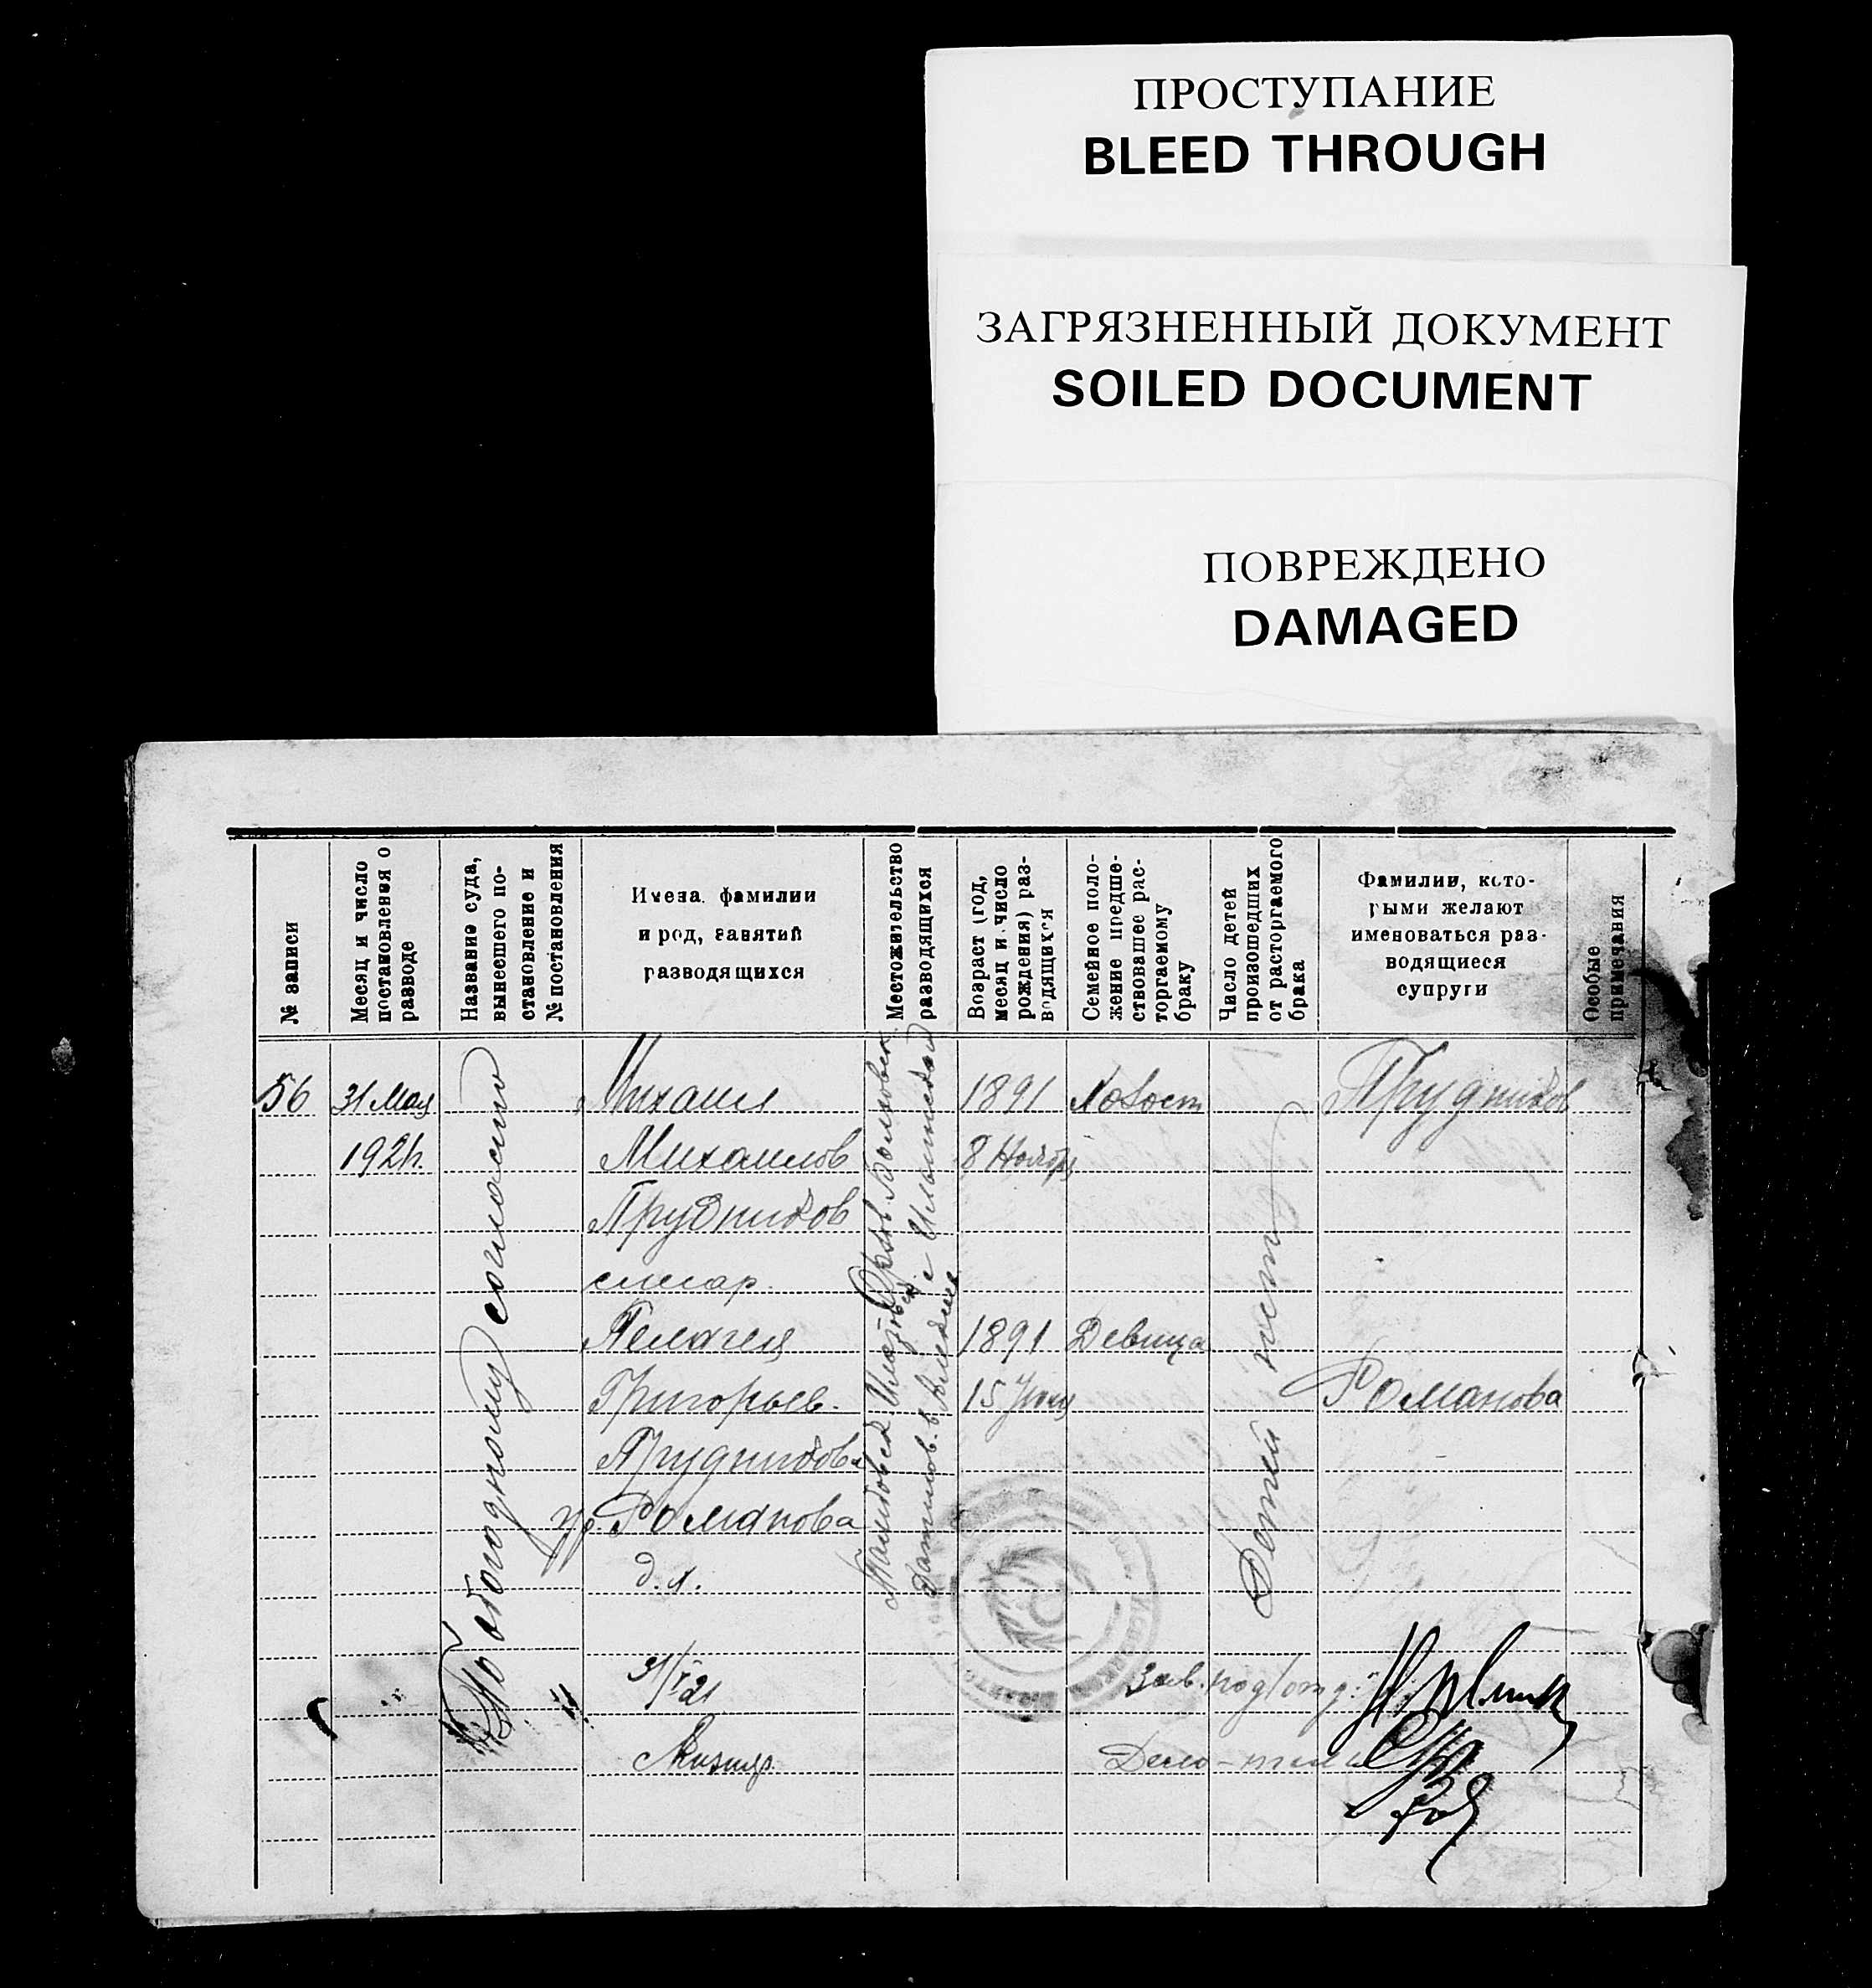 ПРОСТУПАНИЕ
BLEED THROUGH
ЗАГРЯЗНЕННЫЙ ДОКУМЕНТ
SOILED DOCUMENT
ПОВРЕЖДЕНО
DAMAGED
№ записи
Месяц и число
постановления о
разводе
Название суда,
вынесшего по-
становление и
№ постановления
Имена, фамилии
и род, занятий
разводящихся
Местожительство
разводящихся
Возраст (год,
месяц и число
рождения) раз-
водящихся
Семейное поло-
жение предше-
ствовавшее рас-
торгаемому
браку
Число детей
произошедших
от расторгаемого
брака
Фамилии, кото-
рыми желают
именоваться раз-
водящиеся
супруги
Особые
примечания
56
31 Мая
1921г.
По обоюдному согласию
Михаил
Михаилов
Прудников
слесар.
Пелагея
Григорьев.
Прудникова
ур. Романова
д. х.
1891
8 Ноября
1891
15 Июня
Холост
Девица
Детей нету
Прудников
Романова
31/V 21
Зав. под/отд:
Дело-